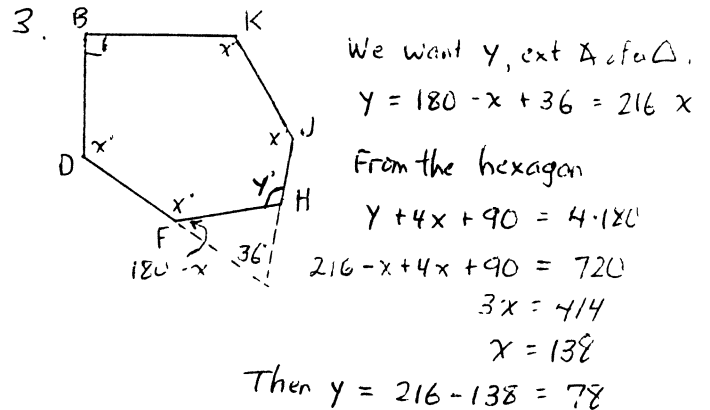 3.
B
K
x°
x° J
D x°
y°
x°
H
F
36°
180 - x
We want y, ext ∡ of a △.
y = 180 - x + 36 = 216 x
From the hexagon
y + 4x + 90 = 4·180
216 - x + 4x + 90 = 720
3x = 414
x = 138
Then y = 216 - 138 = 78